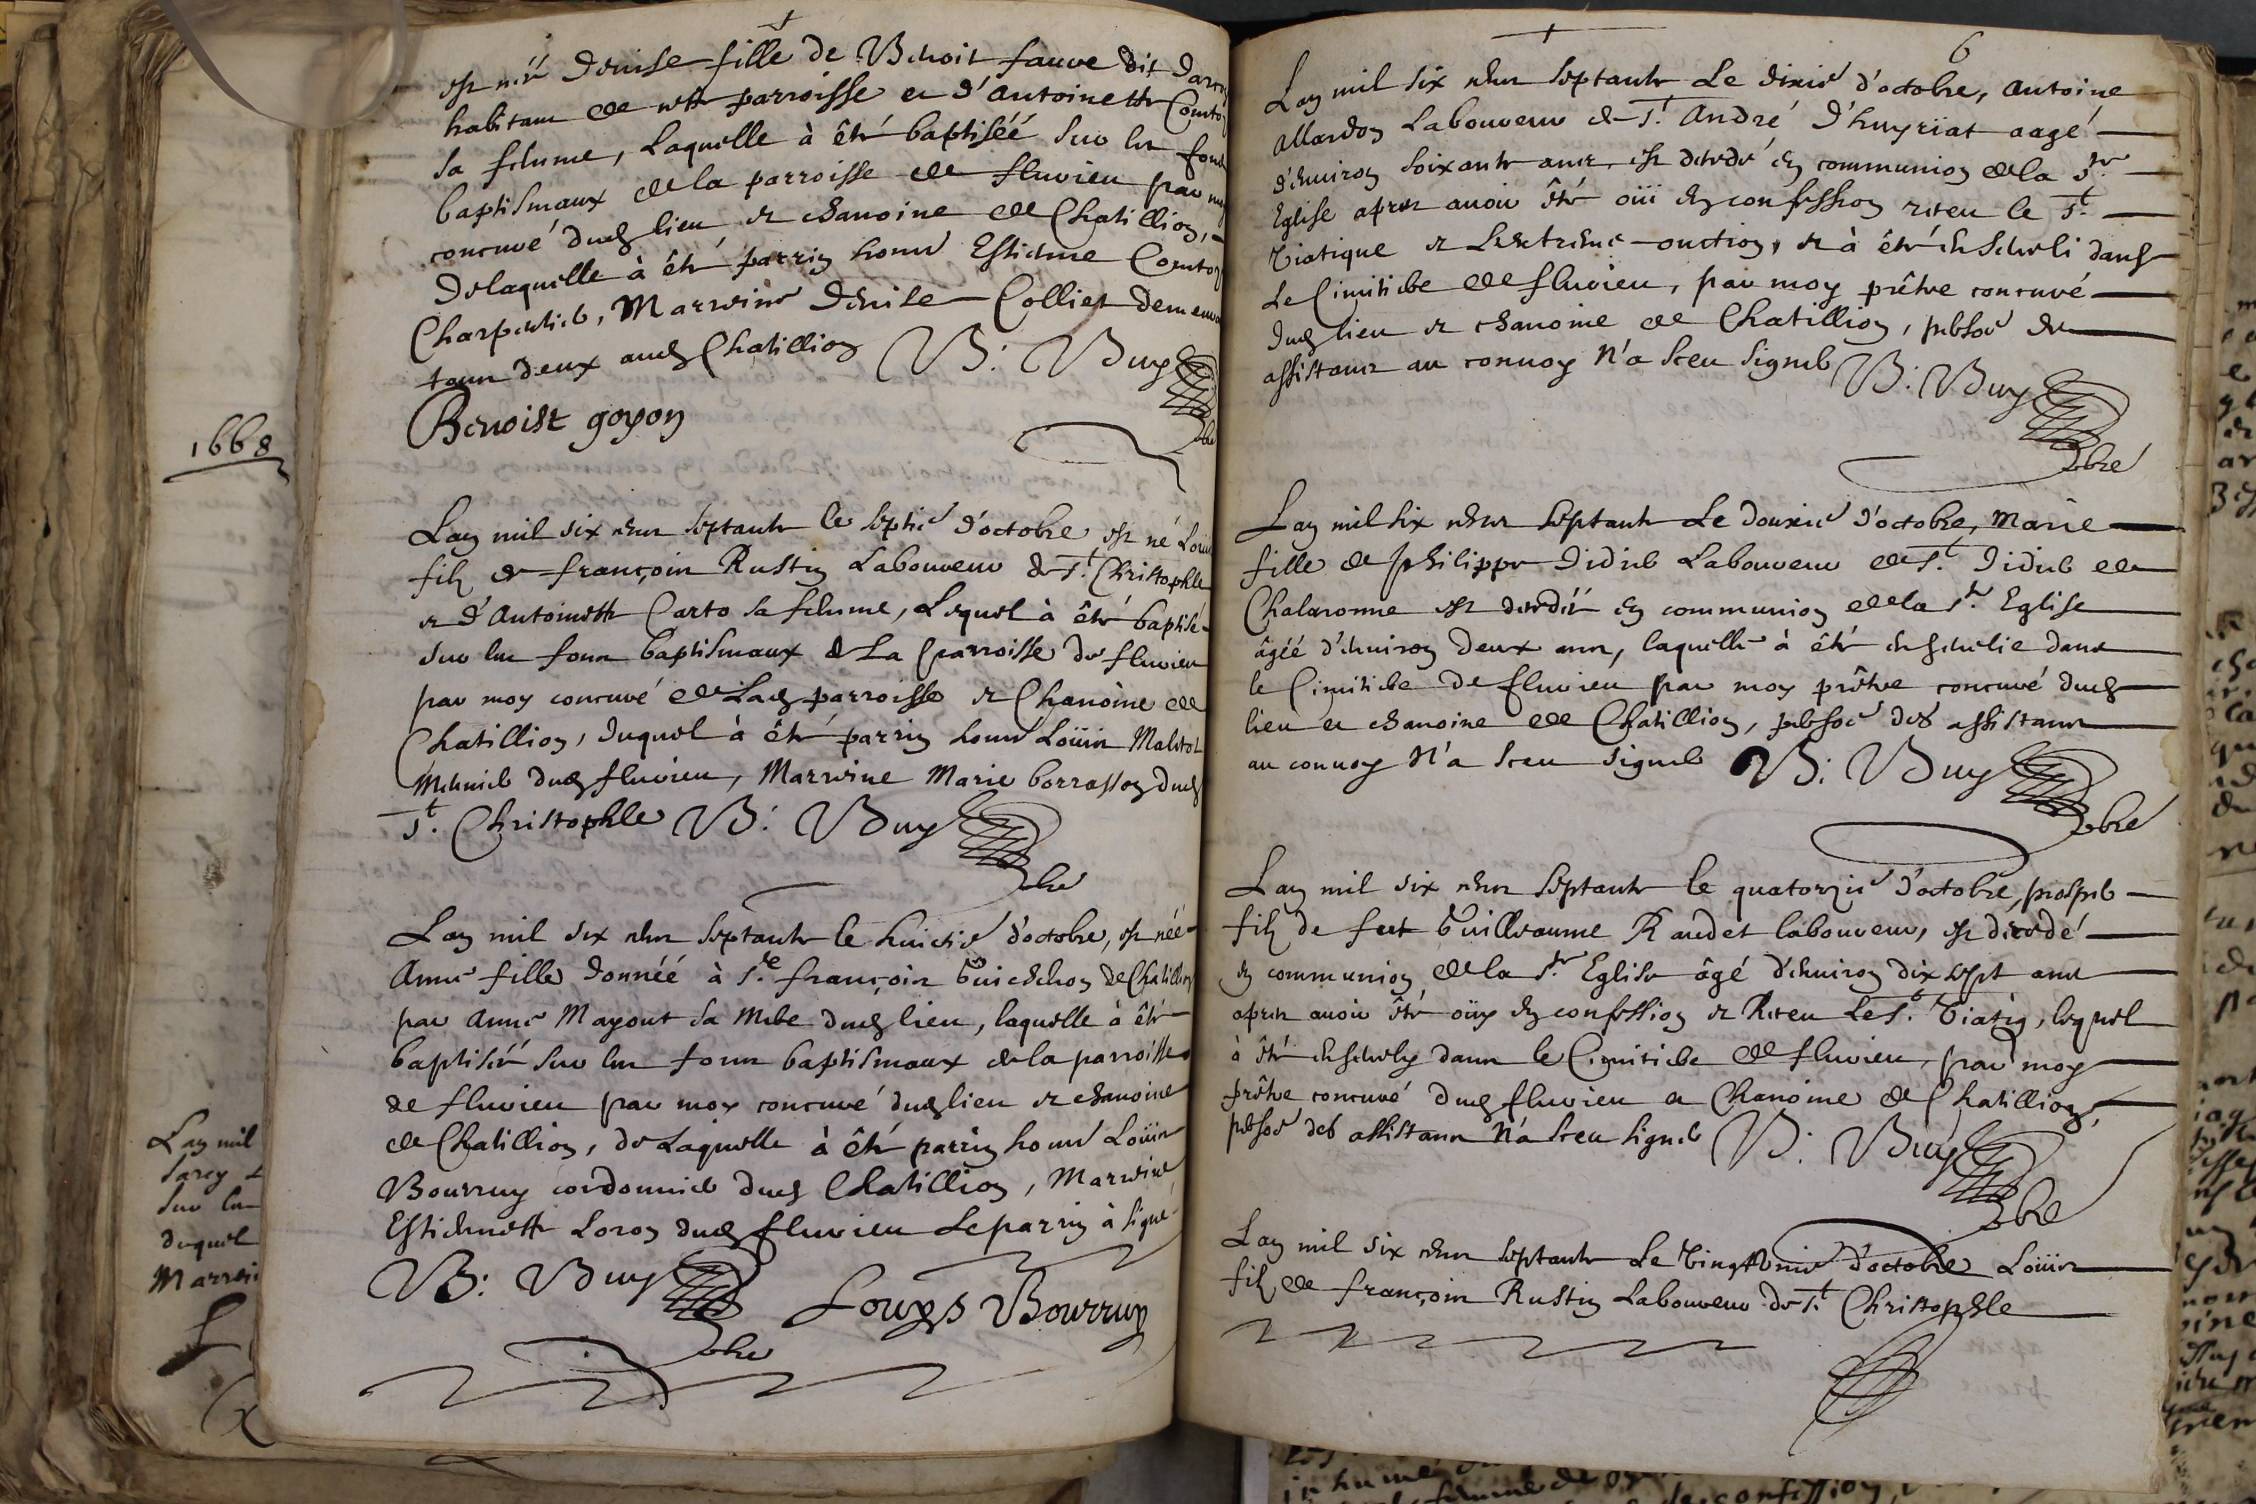 est néé denise fille de Benoit fauve dit
habitant de nostre parroisse et d'antoinette
sa femme, laquelle à êté baptiséé sur les fons
baptismaux de la parroisse de fluvieu par moy
concuré dud lieu et chanoine de Chatillion,
delaquelle à êté parrin honnê Estienne
Charpentier, Marreine denise Collier
tous deux aud Chatillion B: Buy
Benoist goyon
pbre
1668
Lan mil six cens septante le septie d'octobre est né Loüis
filz de françois Rustin Laboureur de St. Christophle
et d'Antoinette Carto sa femme, Lequel à êté baptisé
sur les fons baptismaux de La parroisse de fluvieu
par moy concuré de Lad parroisse et Chanoine de
Chatillion, duquel à êté parrin honnê Loüis
Meunier dud fluvieu, Marreine Marie borrasson dud
St. Christophle B: Buy
pbre
Lan mil six cens septante le huictie d'octobre, est néé
Anne fille donnéé à Sre. françois de Chatillion
par Anne Mayout sa Mere dud lieu, laquelle à êté
baptiséé sur les fons baptismaux de la parroisse
de fluvieu par moy concuré dud lieu et chanoine
de Chatillion, de Laquelle à êté parrin honnê Loüis
Bourruy cordonnier dud Chatillion, Marreine
Estiennette Loron dud fluvieu Le parrin à signé
B: Buy
Louys Bourruy
pbre
Lan mil
sur les
duquel
6
Lan mil six cens septante Le dixie d'octobre, Antoine
Allardon Laboureur de St. André d'huyrïat aagé
d'environ soixante ans est decedé en communion de la Ste.
Eglise apres avoir êté oüi en confession receu le St.
Viatique et Lextreme-onction, et à êté enseveli dans
Le Cimitiere de fluvieu, par moy prêtre concuré
dud lieu et chanoine de Chatillion, persoe des
assistans au convoy N'a sceu signer B: Buy
pbre
Lan mil six cens septante Le douxie d'octobre, Marie
fille de philippe didier Laboureur de St. didier de
Chalaronne est decedéé en communion de la Ste. Eglise
âgéé d'environ deux ans, laquelle à êté ensevelie dans
le Cimitiere de fluvieu par moy prêtre concuré dud
lieu et chanoine de Chatillion, persoe des assistans
au convoy N'a sceu signer B: Buy
pbre
Lan mil six cens septante le quatorzie d'octobre, prosper
filz de feut Guilleaume Raudet laboureur, est decedé
en communion de la Ste. Eglise âgé d'environ dix sept ans
apres avoir êté oüy en confession et Receu Le St. Viatiq, lequel
à êté ensevely dans le Cimitiere de fluvieu, par moy
prêtre concuré dud fluvieu et Chanoine de Chatillion,
persoe des assistans N'a sceu signer B: Buy
pbre
Lan mil six cens septante Le Vingt d'octobre Loüis
filz de françois Rustin Laboureur de St. Christophle